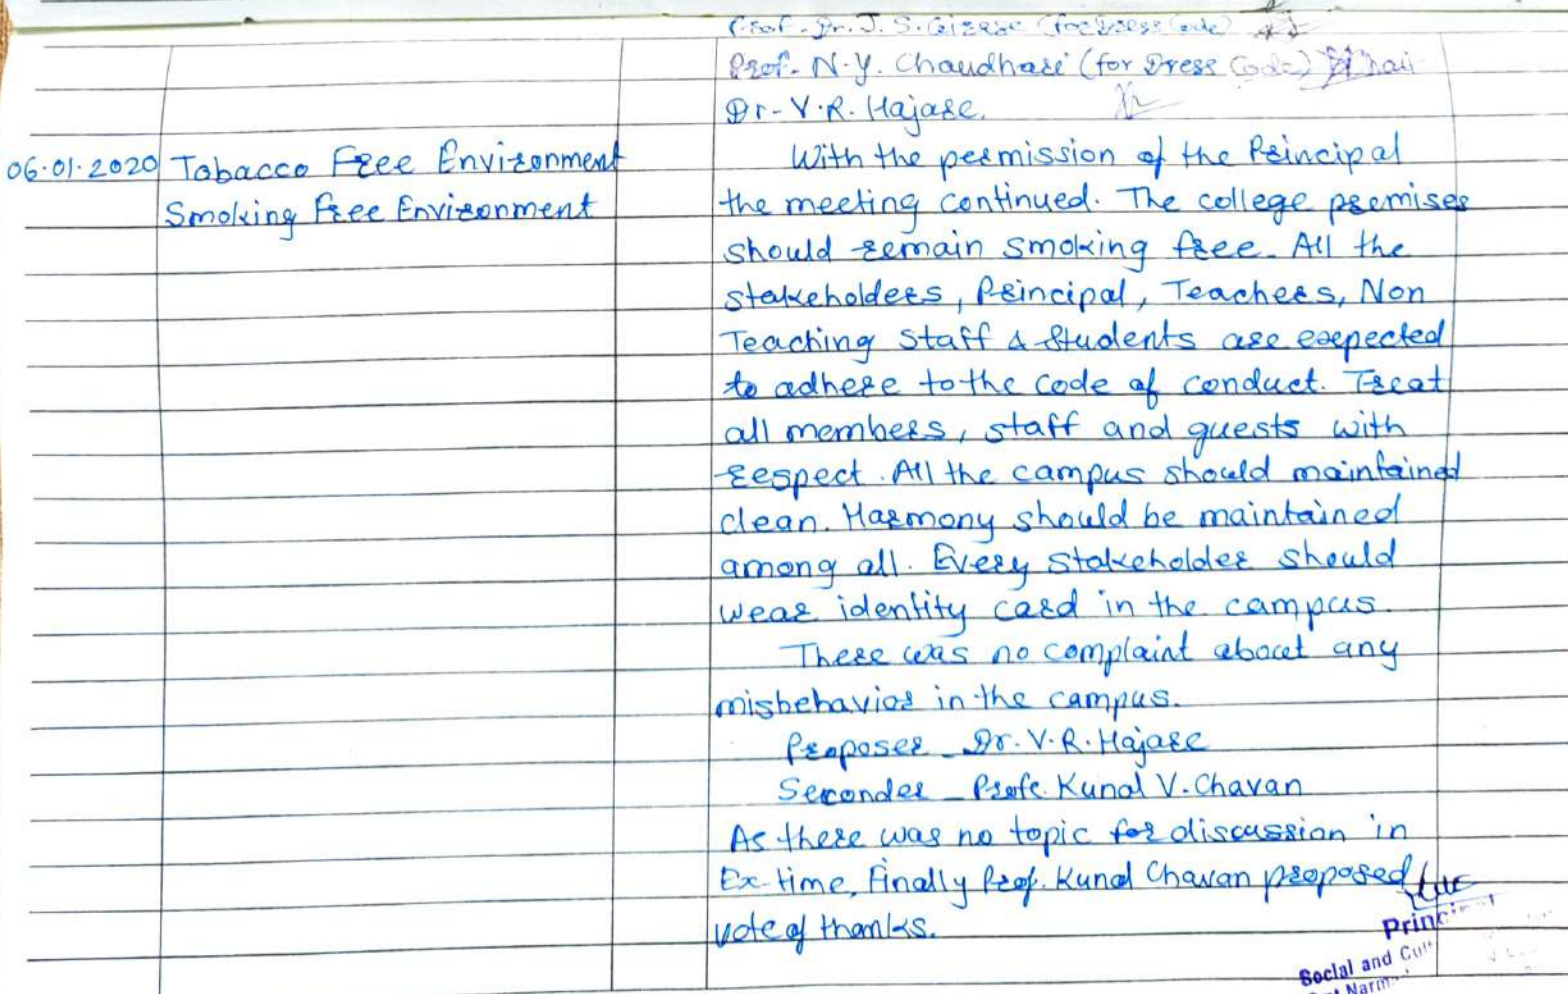 Prof. Dr. J. S. (for Dress Code)
Prof. N.Y. Chaudhari (for Dress Code)
Dr. V.R. Hajare.
06.01.2020 Tobacco Free Environment
Smoking Free Environment
With the permission of the Principal
the meeting continued. The college premises
should remain smoking free. All the
stakeholders, Principal, Teachers, Non
Teaching Staff & Students are expected
to adhere to the code of conduct. Treat
all members, staff and guests with
respect. All the campus should maintained
clean. Harmony should be maintained
among all. Every stakeholder should
wear identity card in the campus.
There was no complaint about any
misbehavior in the campus.
Proposer - Dr. V.R. Hajare
Seconder - Prof. Kunal V. Chavan
As there was no topic for discussion in
Ex-time, Finally Prof. Kunal Chavan proposed
vote of thanks.
Social and